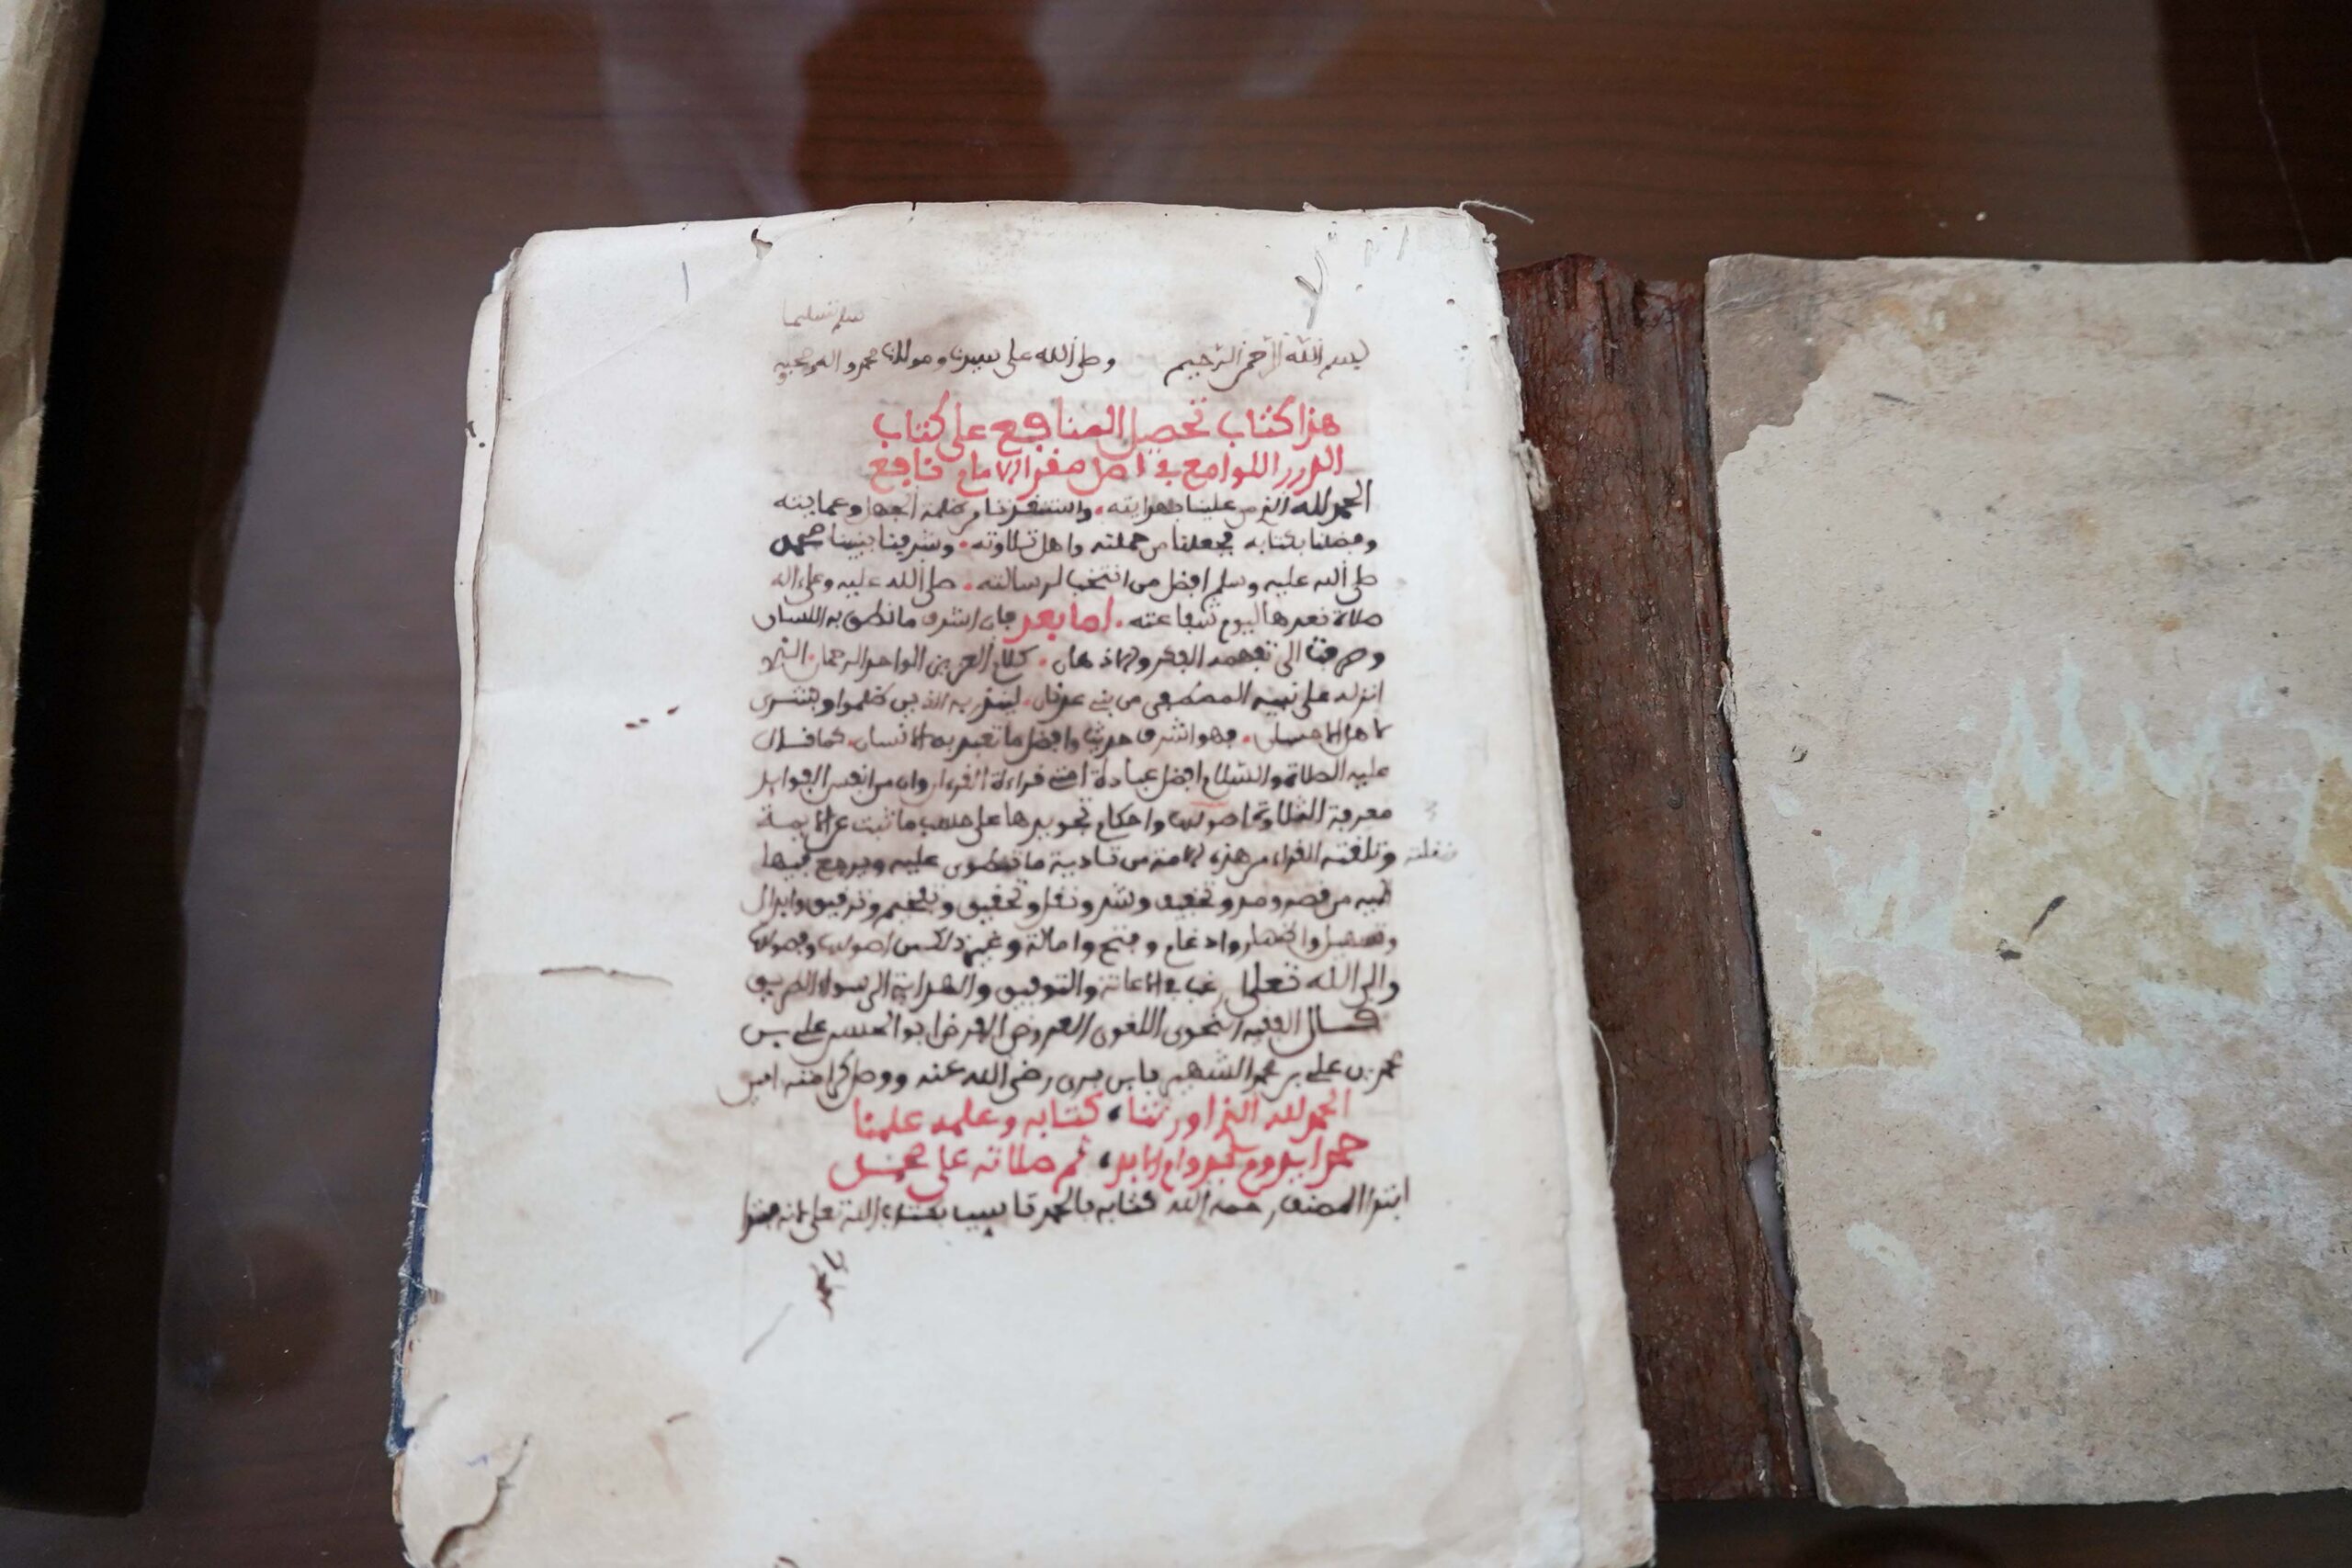 وسلم تسليما
بسم الله الرحمن الرحيم وصلى الله على سيدنا ومولانا محمد واله وصحبه
هذا كتاب تحصيل المنافع على كتاب
الدرر اللوامع في اصل مقرا الامام نافع
الحمد لله الذي من علينا بهدايته. واستنقذنا من ظلمة الجهل وعمايته
وفضلنا بكتابه فجعلنا من حملته واهل تلاوته. وشرفنا بنبينا محمد
صلى الله عليه وسلم افضل من انتخب لرسالته. صلى الله عليه وعلى اله
صلاة نعدها ليوم شفاعته. اما بعد فان اشرف ما نطق به اللسان
وصرفت الى تفهمه الفكر والاذهان. كلام العزيز الواحد الرحمان. الذي
انزله على نبيه المصطفى من بني عدنان. لينذر به الذين ظلموا وبشرى
لاهل الاحسان. فهو اشرف حديث وافضل ما تعبد به الانسان. كما قال
عليه الصلاة والسلام افضل عبادة امتي قراءة القرءان وان من انفس الفوايد
معرفة التلاوة اصولها واحكام تجويدها على حسب ما ثبت عن الايمة
نقلته وتلقته القراء من هذه الامة من تادية ما تنطوى عليه ويرجع فيها
اليه من قصر ومد وتخفيف وشد ونقل وتحقيق وتفخيم وترقيق وابدال
وتسهيل واظهار وادغام وفتح وامالة وغير ذلك من اصولها وفصولها
والى الله تعلى ارغب في الاعانة والتوفيق والهداية الى سواء الطريق
قال الفقيه النحوى اللغوى العروضى الفرضى ابو الحسن على بن
محمد بن على بن محمد الشهير بابن برى رضى الله عنه ووصل كرامته امين
الحمد لله الذى اورثنا، كتابه وعلمه علمنا
حمدا يدوم بدوام الابد، ثم صلاته على محمد
ابتدا المصنف رحمه الله كتابه بالحمد تاسيا بكتاب الله تعلى لانه مبتدا
بالحمد